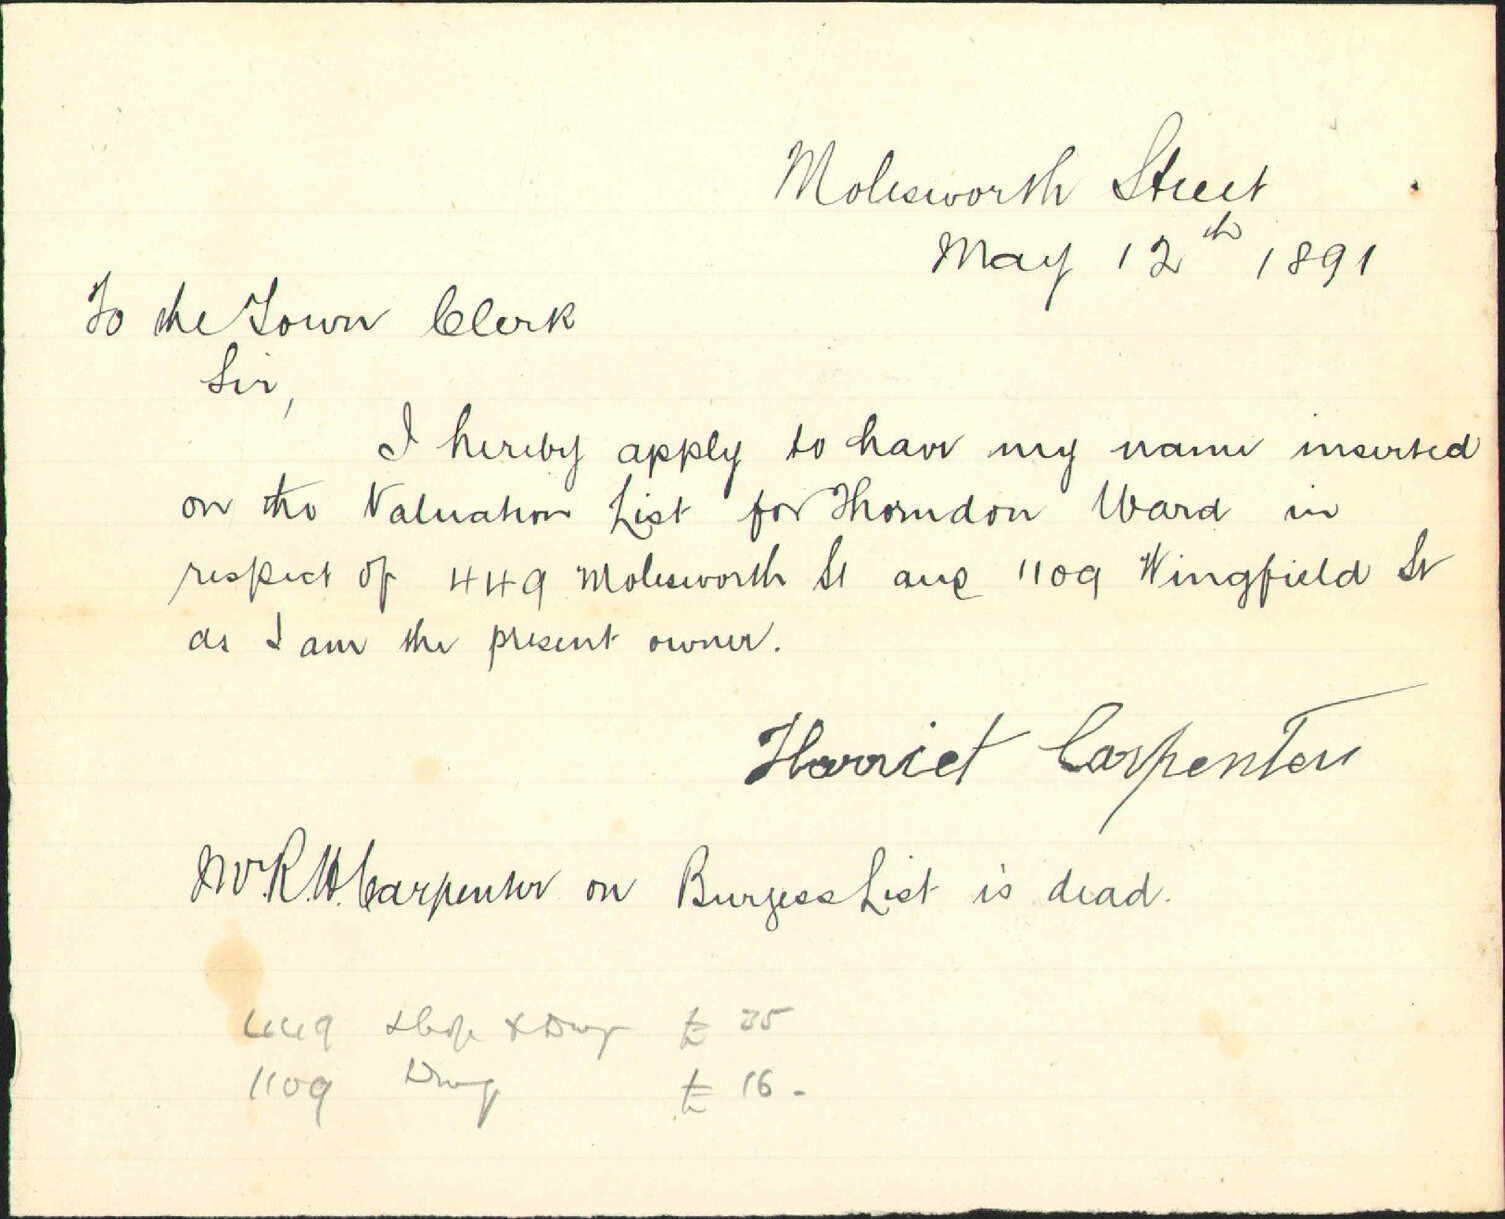 Molesworth Street
May 12th 1891
To the Town Clerk
Sir,
I hereby apply to have my name inserted
on the Valuation List for Thorndon Ward in
respect of 449 Molesworth St and 1109 Wingfield St
as I am the present owner.
Harriet Carpenter
Mr. R. H. Carpenter on Burgess List is dead.
449 Shop & Dwg £ 35
1109 Dwg £ 16 -